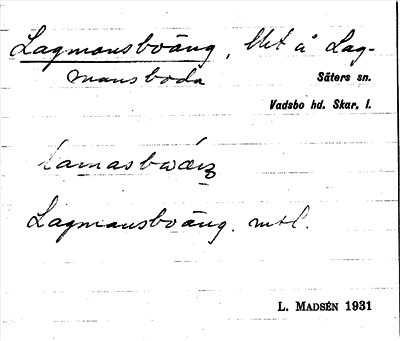 Lagmansboäng, Utt å Lag-
mansboda
Säters sn.
Vadsbo hd. Skar. l.
Lagmansboäng. mtl.
L. MADSÉN 1931